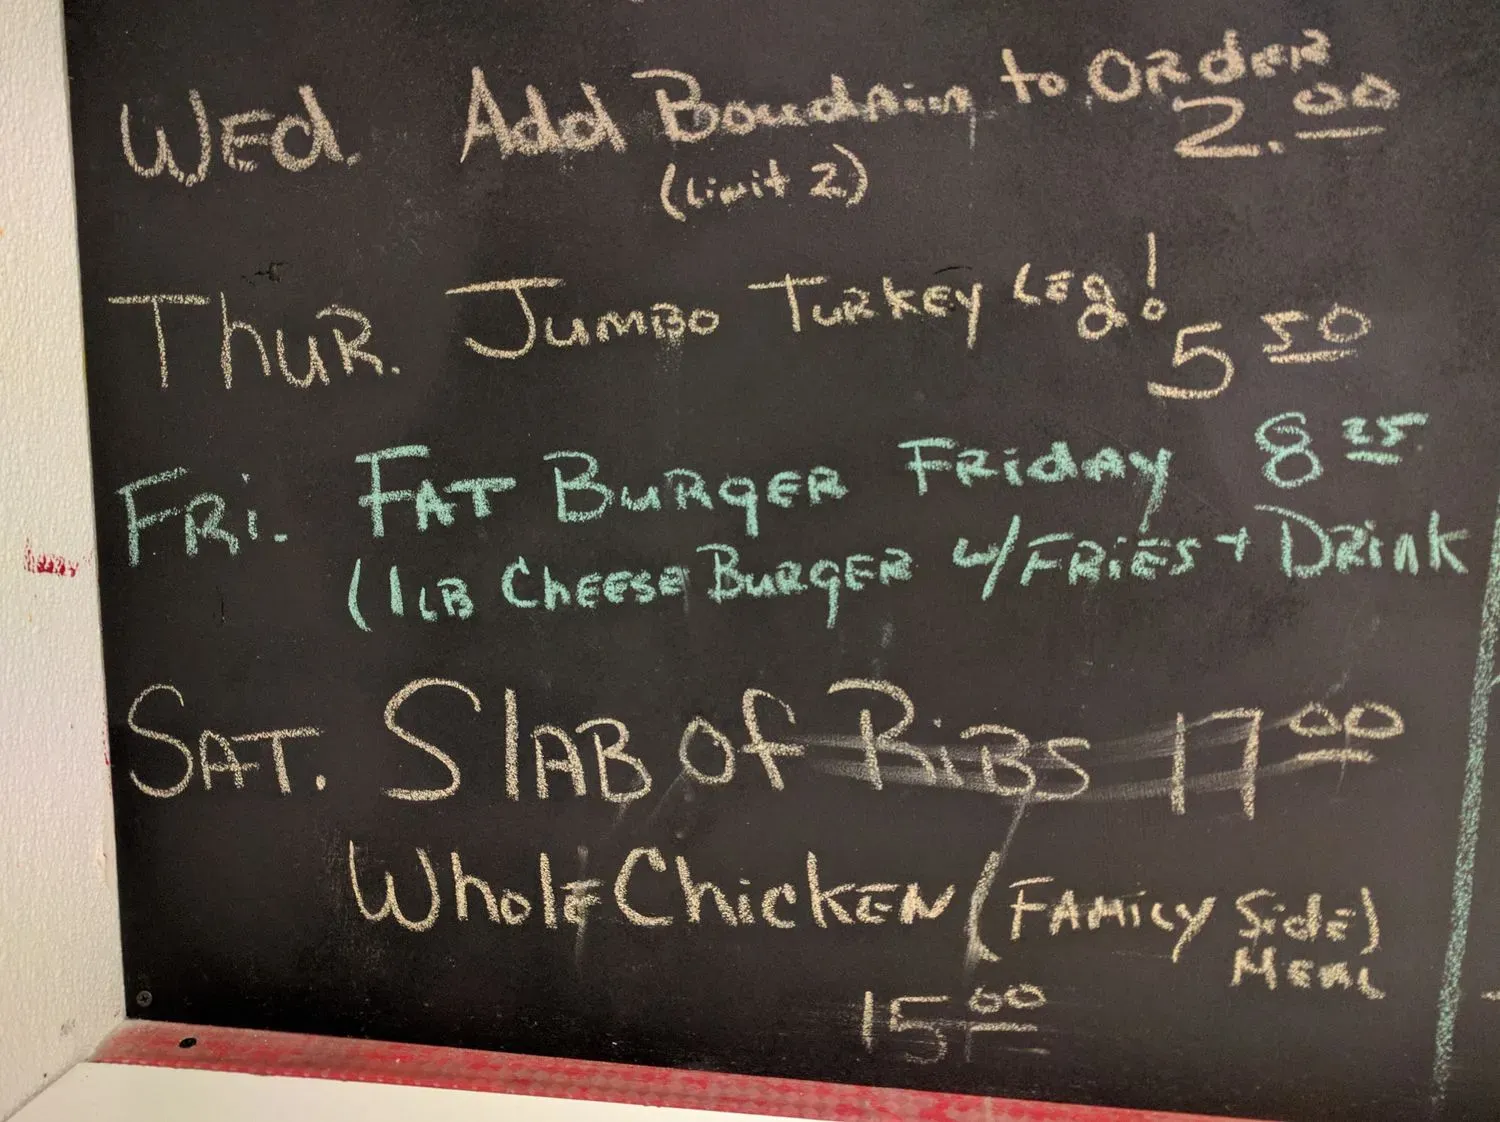 Wed. Add Boudain to Order 2.00
(Limit 2)
Thur. Jumbo Turkey Leg! 5 50
Fri. Fat Burger Friday 8 25
(1 LB Cheese Burger w/Fries + Drink
Sat. Slab of Ribs 17 00
Whole Chicken (Family Side)
Meal
15 00